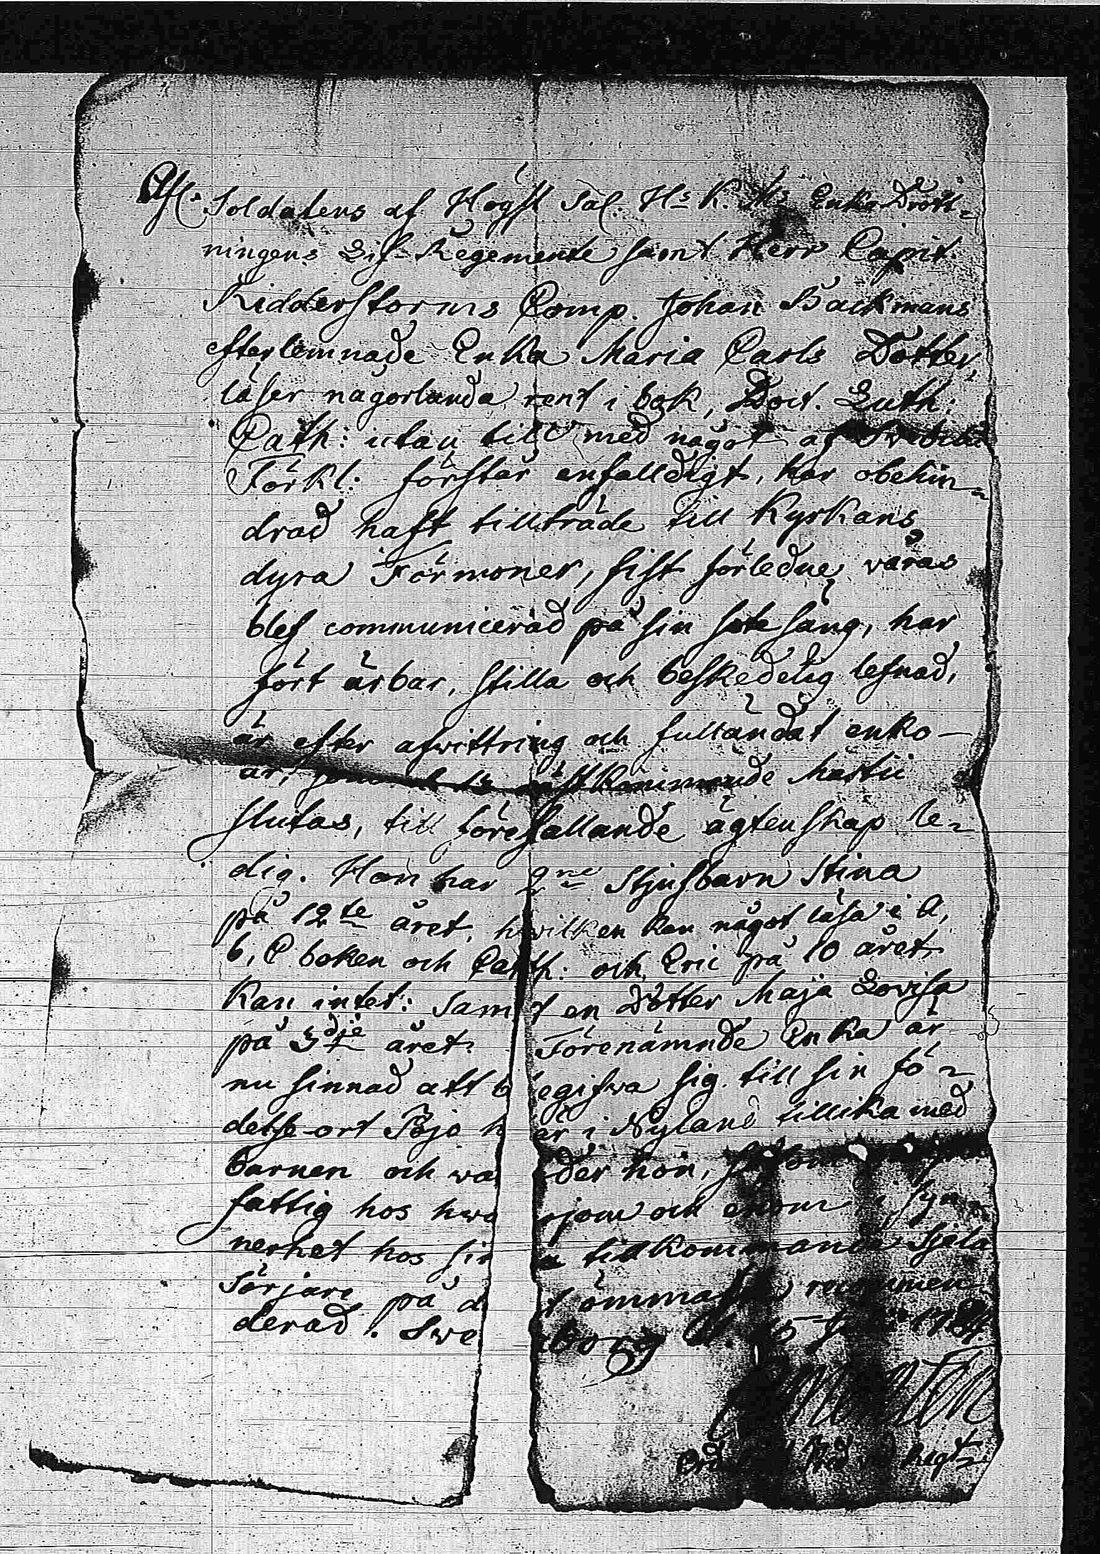 Afl. Soldatens af Högst Sal. Hs K. Ms Enke Drott-
ningens Lif-Regemente samt Herr Capit.
Ridderstorms Comp. Johan Backmans
efterlemnade Enka Maria Carls Dotter,
läser någorlunda rent i bok, Doct. Luth:
Cath: utan till med något af Swebilii
Förkl: förstår enfalldigt, har obehin-
drad haft tillträde till Kyrkans
dyra Förmoner, sist förledne våras
blef communicerad på sin sotesäng, har
fört ärbar, stilla och beskedelig lefnad,
är efter afwittring och fulländat enko-
år, Martii
slutas, till förefallande ägtenskap le-
dig. Hon har 2ne Stjufbarn Stina
på 12te året, hwilken kan något läsa i A,
b, C boken och Cath: och Eric på 10 året
kan intet: samt en Dotter Maja Lovisa
på 3dje året. Förenämnde Enka är
nu sinnad att begifwa sig till sin fö-
delse-ort Pojo här i Nyland tillika med
barnen och wa der hon, såsom
fattig hos hwarjom och enom i syn-
nerhet hos sina tillkommande Själa
Sörjare på det ömmaste recommen-
derad. Sweaborg d. 15 1784.
Regt.